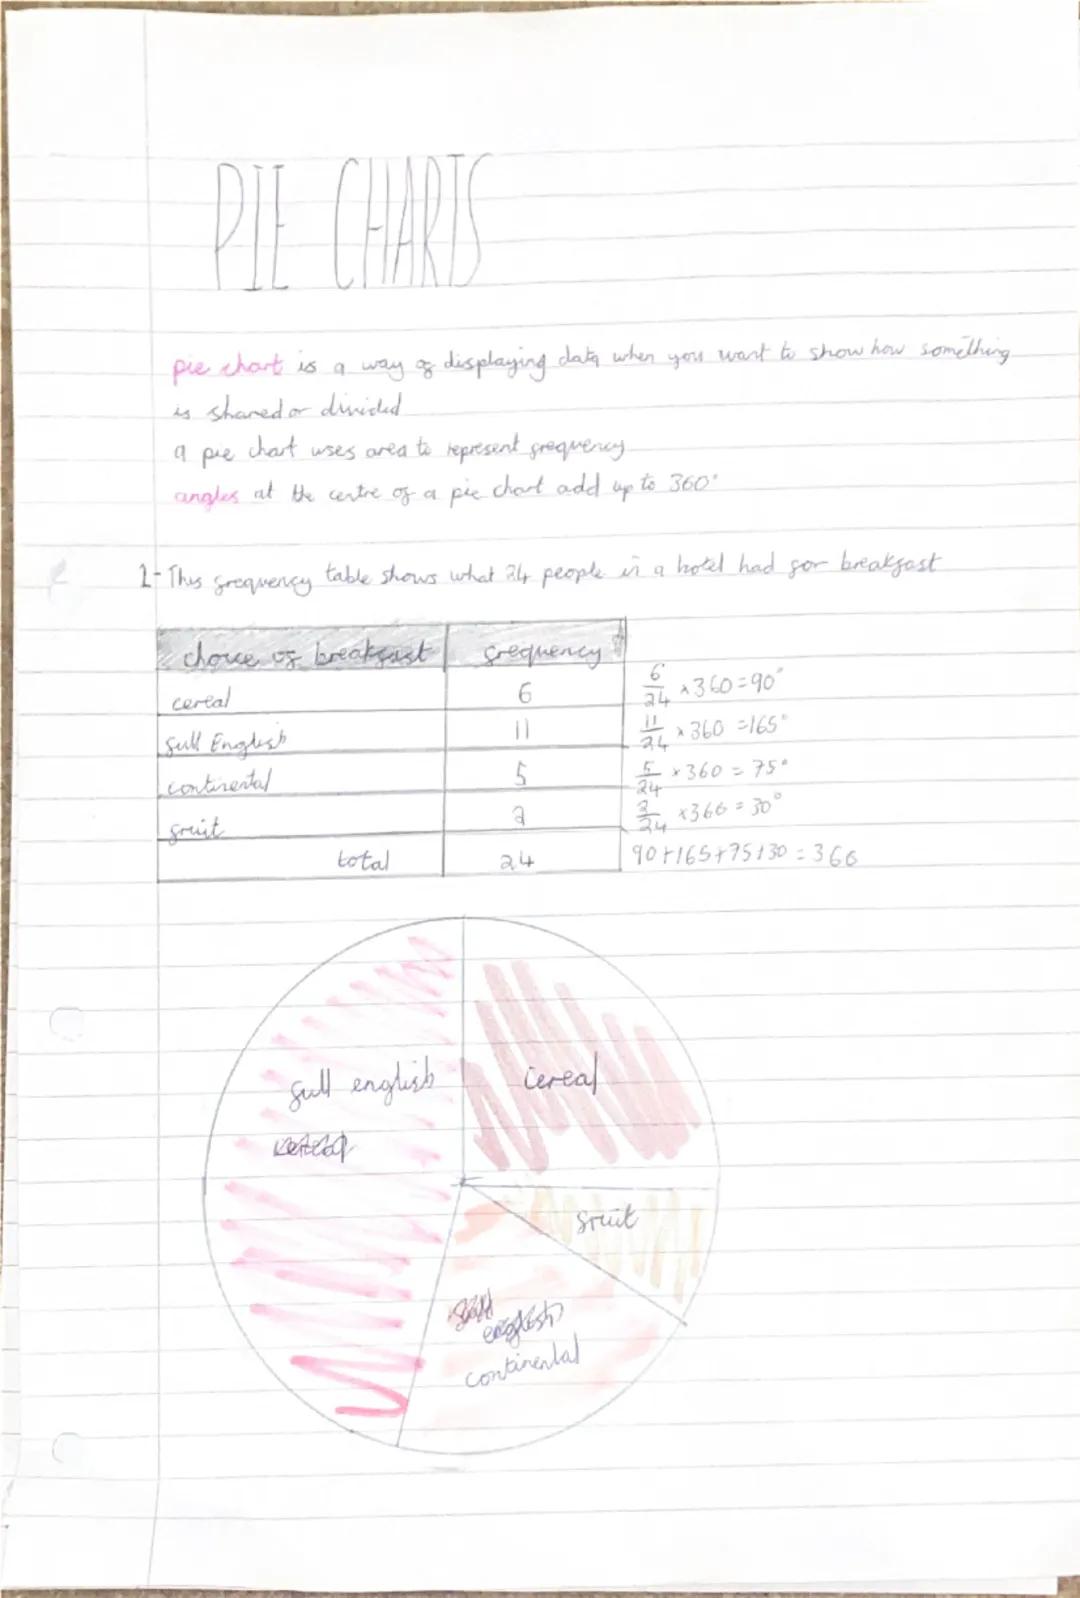 PIE CHARTS
pie chart is a way of displaying data when you want to show how something
is shared or divided
a pie chart uses area to represent frequency
angles at the centre of a pie chart add up to 360°
1- This frequency table shows what 24 people in a hotel had for breakfast
choice of breakfast frequency
cereal 6 6/24 ×360=90°
full English 11 11/24 ×360=165°
continental 5 5/24 ×360=75°
fruit 2 2/24 ×360=30°
total 24 90+165+75+30=360
full english
cereal
fruit
english
continental